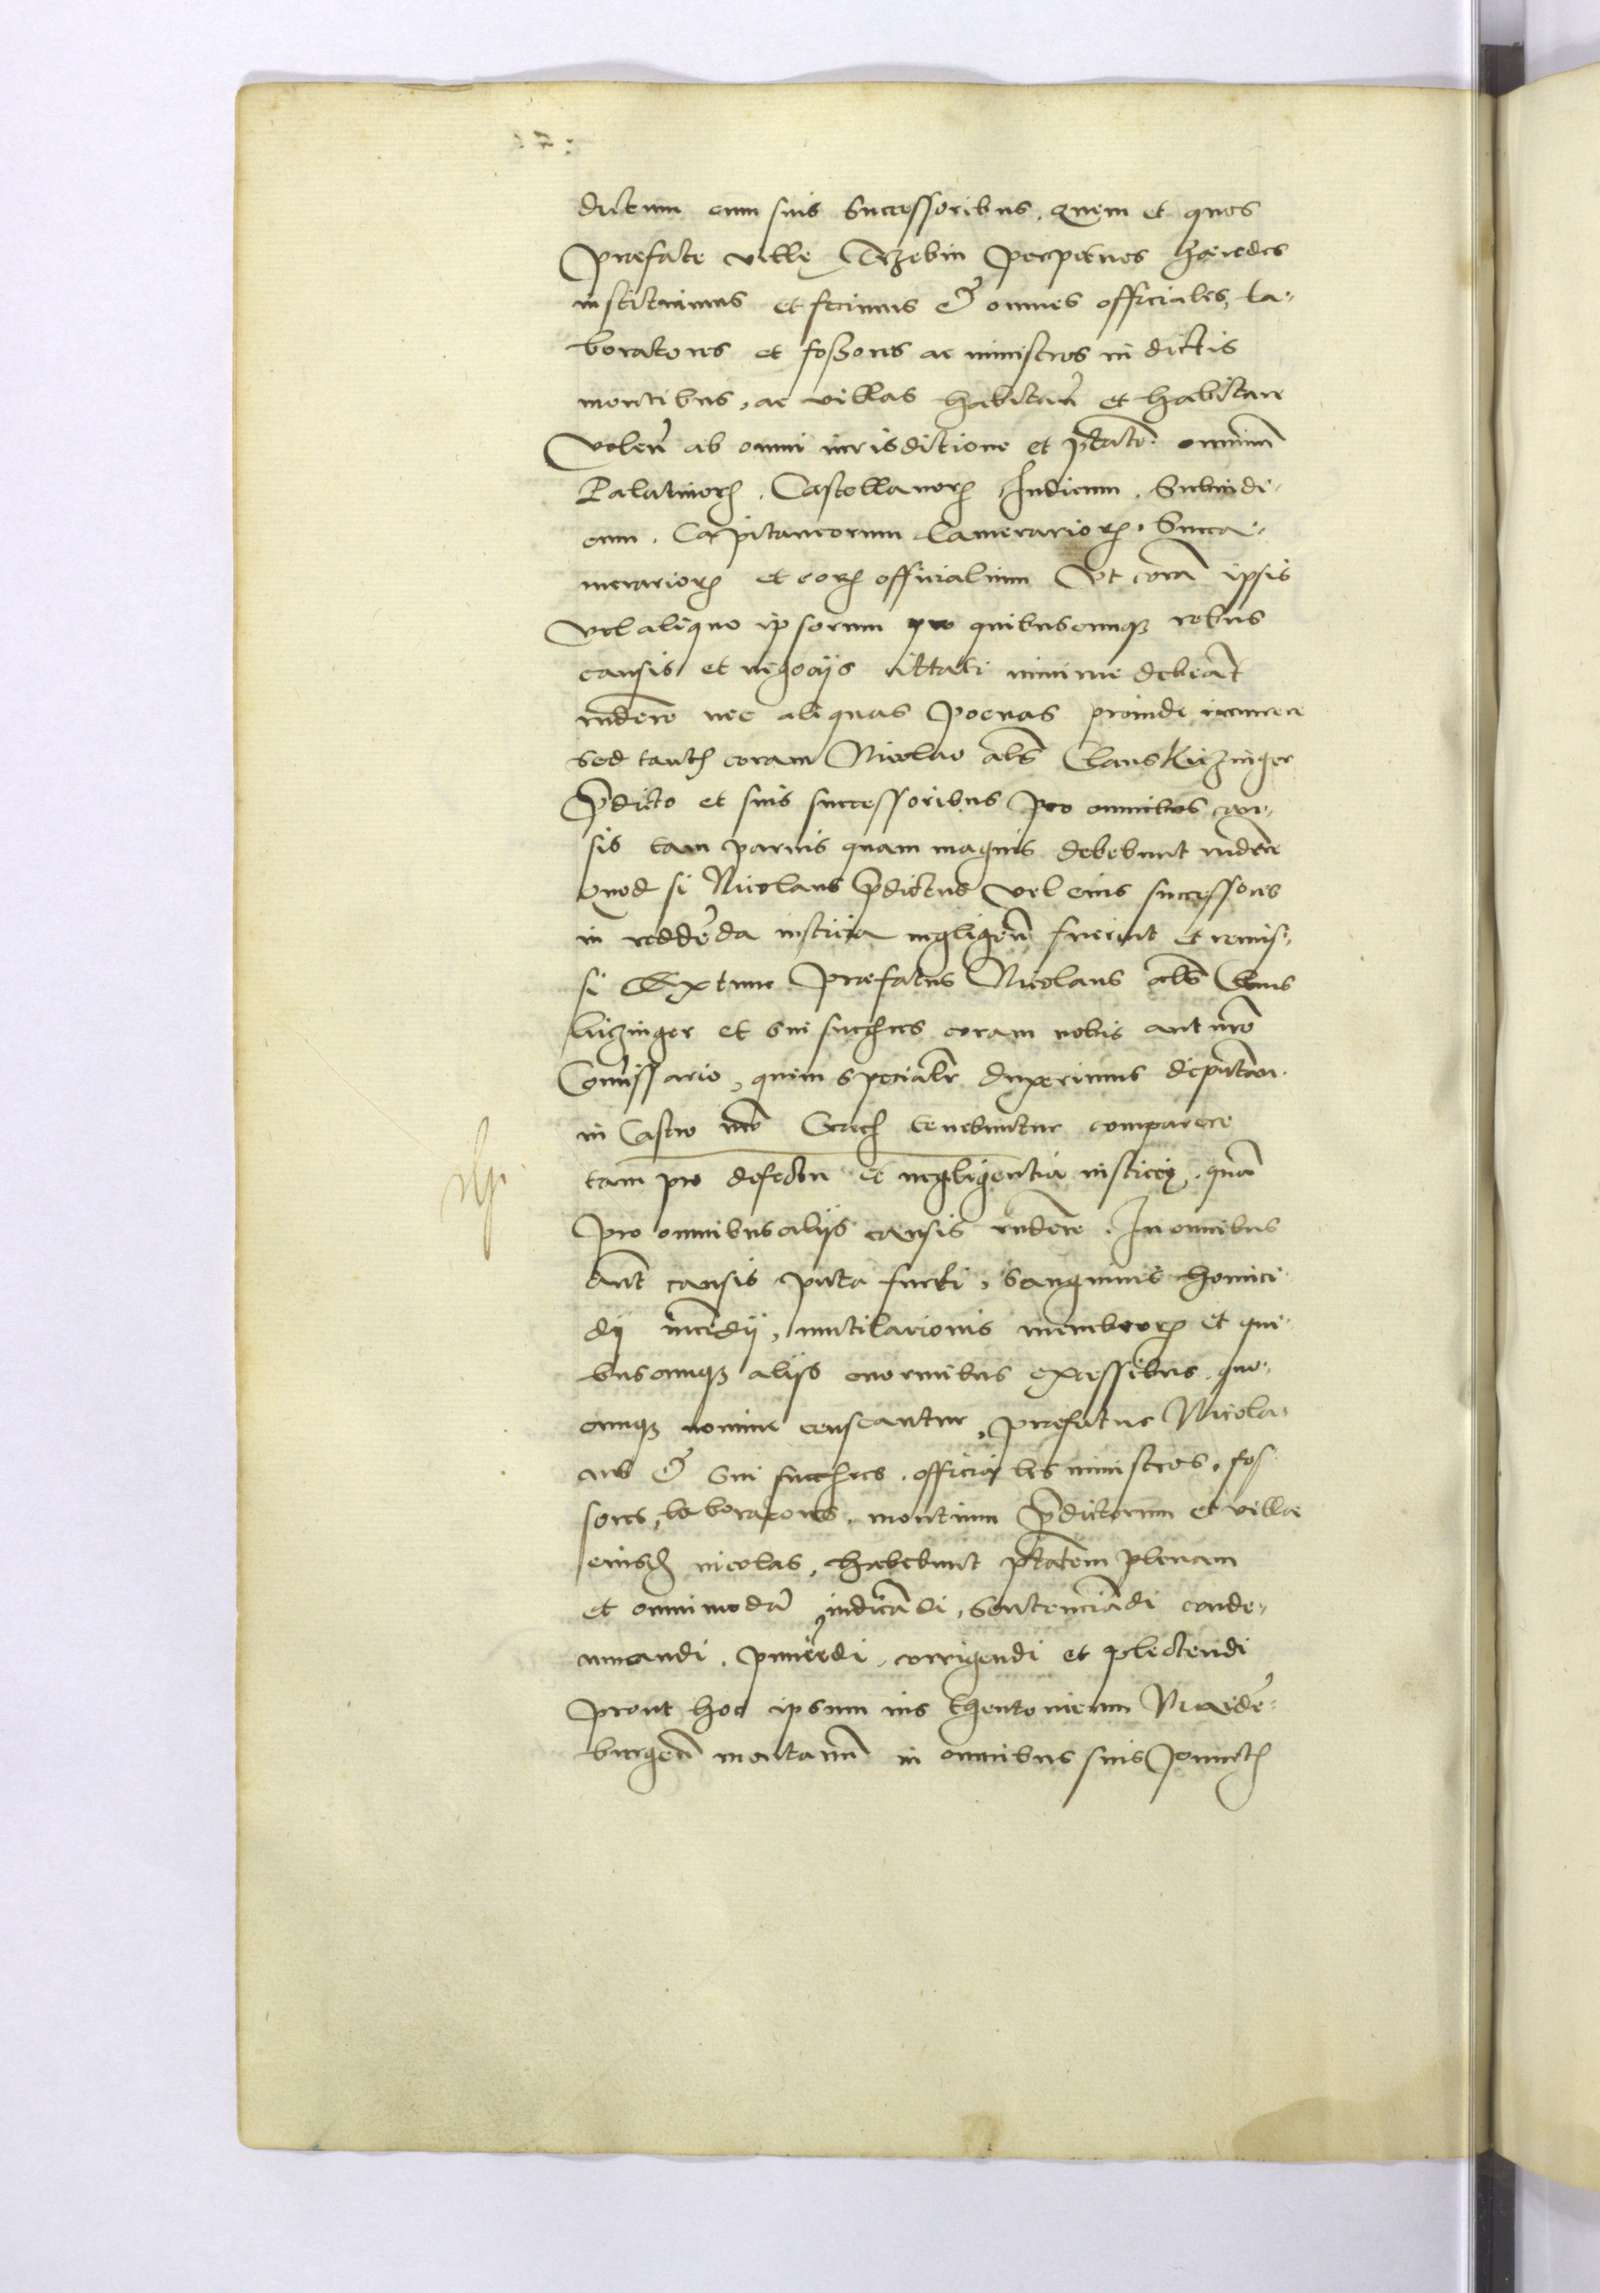 dictum cum suis Successoribus. Quem et quos
Præfate villę Trzebin perpetuos hæredes
instituimus et fecimus & omnes officiales, la-
boratores et foßores ac ministros in dictis
montibus, ac villas habitan̄ et habitare
Volen̄ ab omni iurisdictione et ptāte omnium
Palatinorꝝ. Castellanorꝝ Iudicum. Subiudi-
cum. Capitaneorum Camerariorꝝ. Succa-
merariorꝝ et eorꝝ officialium Vt corā ipsis
Vel aliquo ipsorum pro quibuscumqꝫ rebus
causis et negocijs citati minime debeāt
rndere nec aliquas poenas proinde incurrere
Sed tantū coram Nicolao als̄ Claus Kiczinger
p̄dicto et suis successoribus pro omnibus cau-
sis tam paruis quam magnis debebunt rndere
Quod si Nicolaus p̄dictus vel eius successores
in reddēda iusticia negligen̄ fuerint et remis-
si Extunc præfatus Nicolaus als̄ Claus
kiczinger et Sui succ̄res coram nobis aut nrō
Comissario, quem specialr̄ duxerimus deputan̄.
in Castro nrō Crach tenebuntur comparere
tam pro defectu et negligentia iusticię, quā
pro omnibus alijs causis rndere. In omnibus
aut̄ causis puta furti, Sanguinis homici-
dij incēdij, mutilacionis membrorꝝ et qui-
buscumqꝫ alijs enormibus excessibus, quo-
cumqꝫ nomine censeantur, præfatus Nicola-
us & Sui succ̄res, officiales ministros, fos-
sores, laboratores, montium p̄dictorum et villæ
eiusd̄ incolas, habebunt ptātem plenam
et omnimodā iudicādi, Sentenciādi conde-
mnandi, puniēdi, corrigendi et plectendi
prout hoc ipsum ius theutonicum Maide-
burgen̄ montanū in omnibus suis punctꝭ